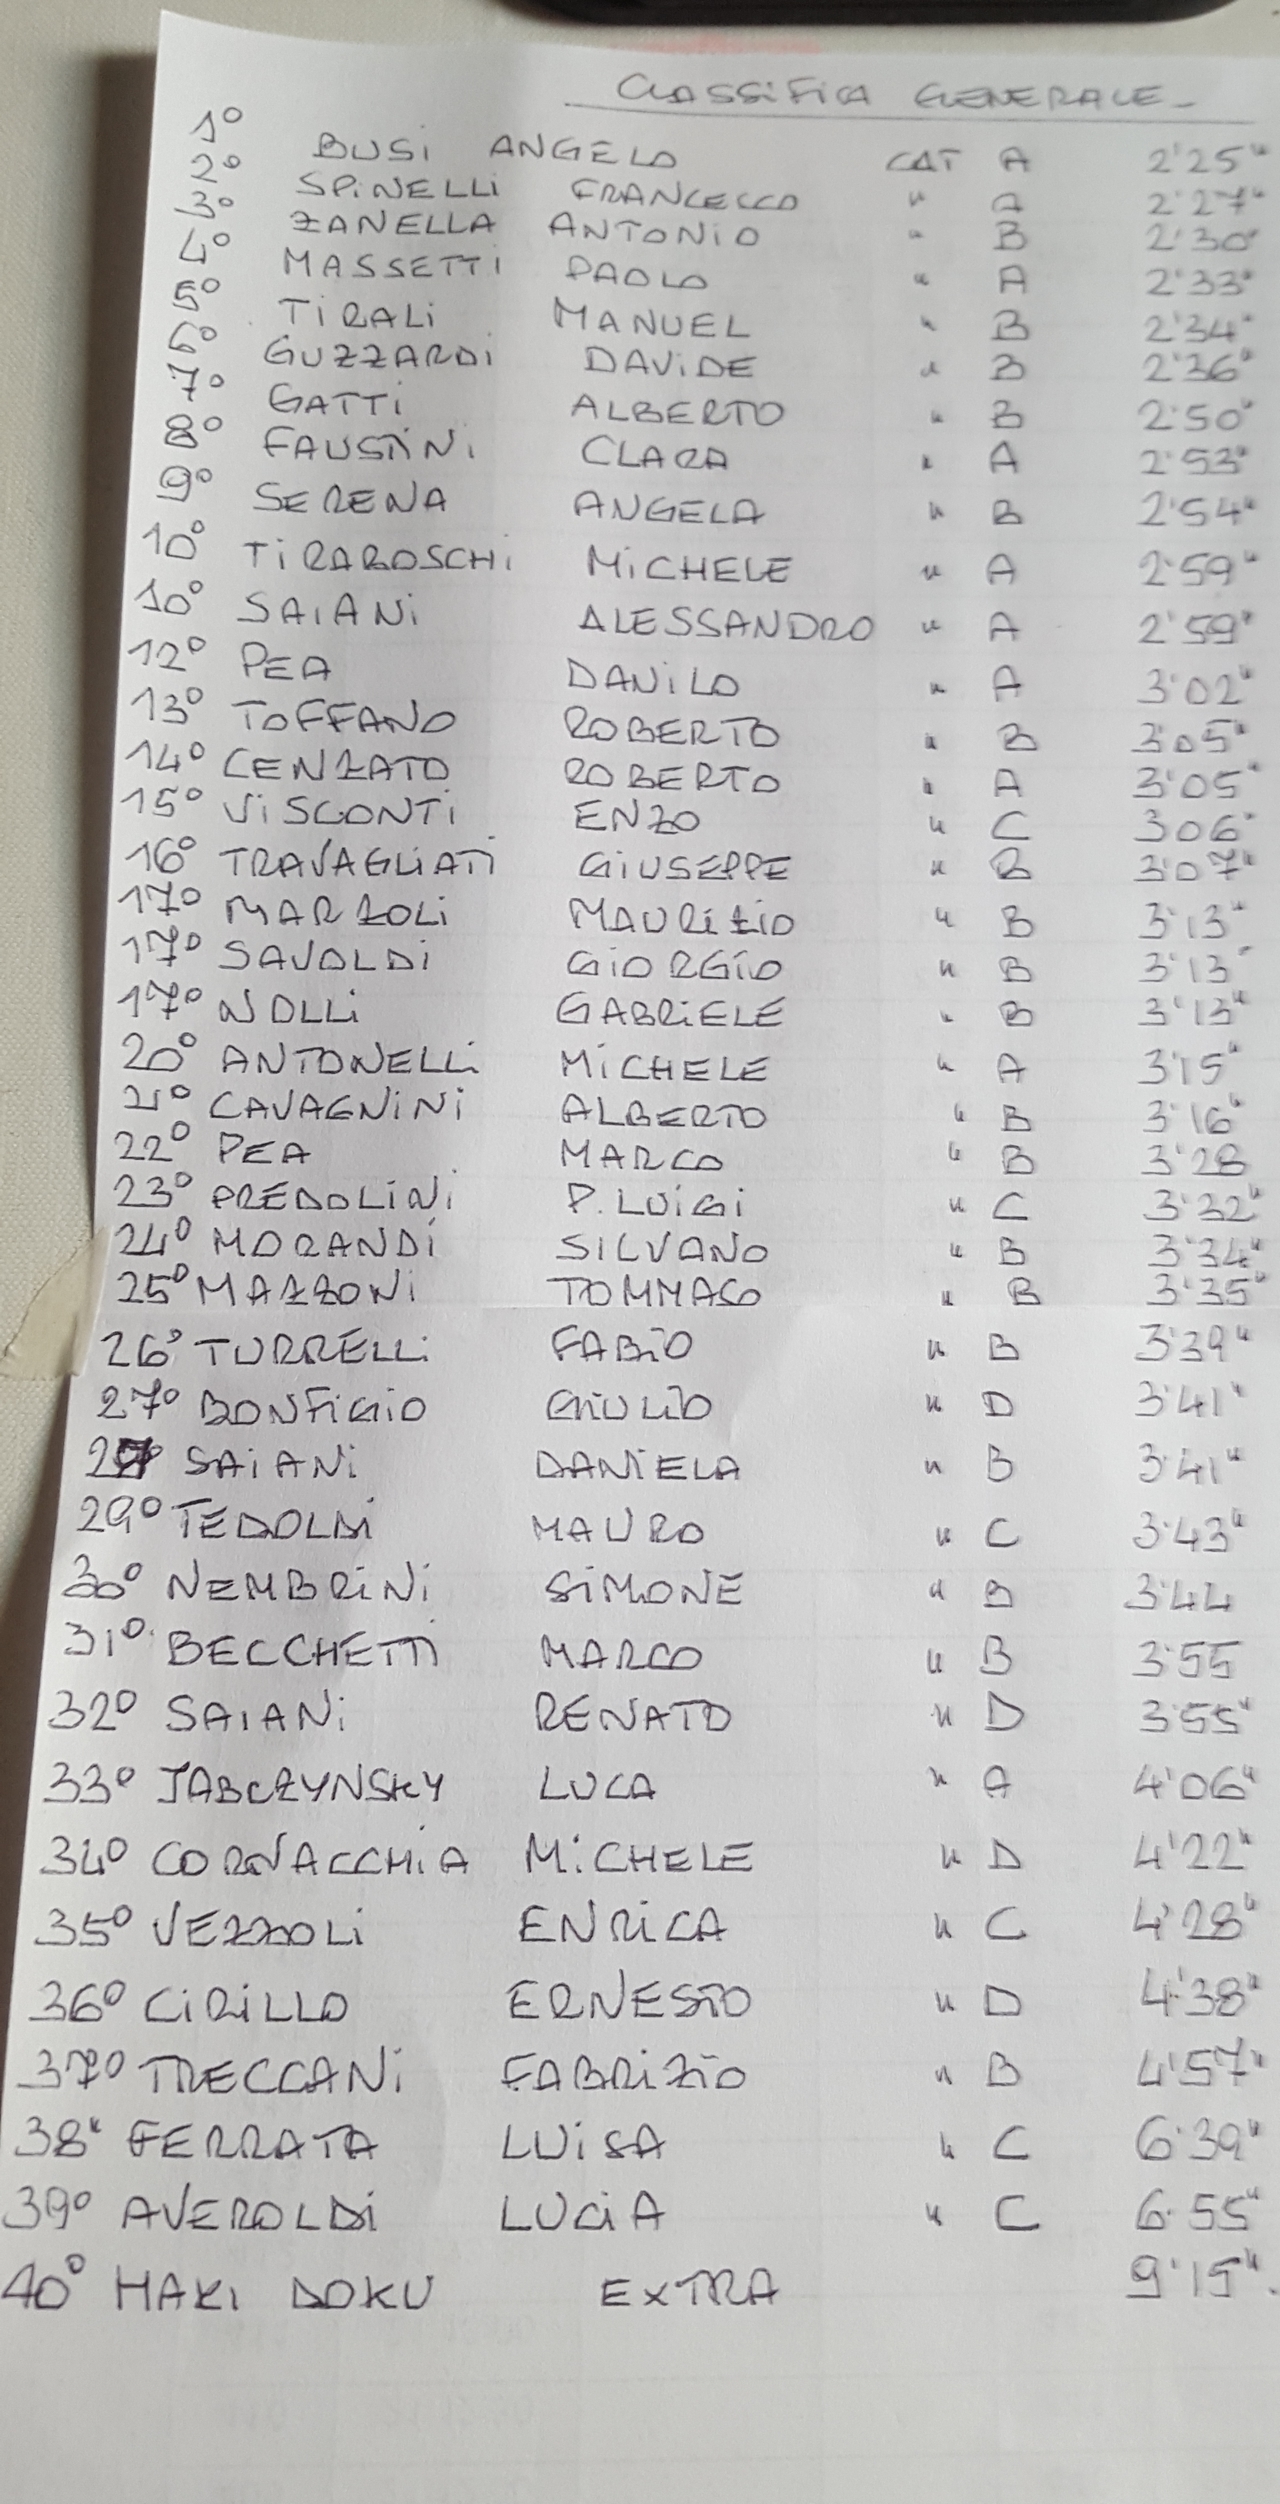 CLASSIFICA GENERALE
1° BUSI ANGELO CAT A 2'25"
2° SPINELLI FRANCESCO " A 2'27"
3° ZANELLA ANTONIO " B 2'30"
4° MASSETTI PAOLO " A 2'33"
5° TIRALI MANUEL " B 2'34"
6° GUZZARDI DAVIDE " B 2'36"
7° GATTI ALBERTO " B 2'50"
8° FAUSTINI CLARA " A 2'53"
9° SERENA ANGELA " B 2'54"
10° TIRABOSCHI MICHELE " A 2'59"
10° SAIANI ALESSANDRO " A 2'59"
12° PEA DANILO " A 3'02"
13° TOFFANO ROBERTO " B 3'05"
14° CENZATO ROBERTO " A 3'05"
15° VISCONTI ENZO " C 3'06"
16° TRAVAGLIATI GIUSEPPE " B 3'07"
17° MARZOLI MAURIZIO " B 3'13"
17° SAVOLDI GIORGIO " B 3'13"
17° NOLLI GABRIELE " B 3'13"
20° ANTONELLI MICHELE " A 3'15"
21° CAVAGNINI ALBERTO " B 3'16"
22° PEA MARCO " B 3'28
23° PREDOLINI P. LUIGI " C 3'32"
24° MORANDI SILVANO " B 3'34"
25° MAZZONI TOMMASO " B 3'35"
26° TURRELLI FABIO " B 3'39"
27° BONFIGIO GIULIO " D 3'41"
27° SAIANI DANIELA " B 3'41"
29° TEDOLDI MAURO " C 3'43"
30° NEMBRINI SIMONE " B 3'44
31° BECCHETTI MARCO " B 3'55
32° SAIANI RENATO " D 3'55"
33° JABCZYNSKY LUCA " A 4'06"
34° CORNACCHIA MICHELE " D 4'22"
35° VEZZOLI ENRICA " C 4'28"
36° CIRILLO ERNESTO " D 4'38"
37° TRECCANI FABRIZIO " B 4'57"
38" FERRATA LUISA " C 6'39"
39° AVEROLDI LUCIA " C 6'55"
40° HAKI DOKU EXTRA 9'15".